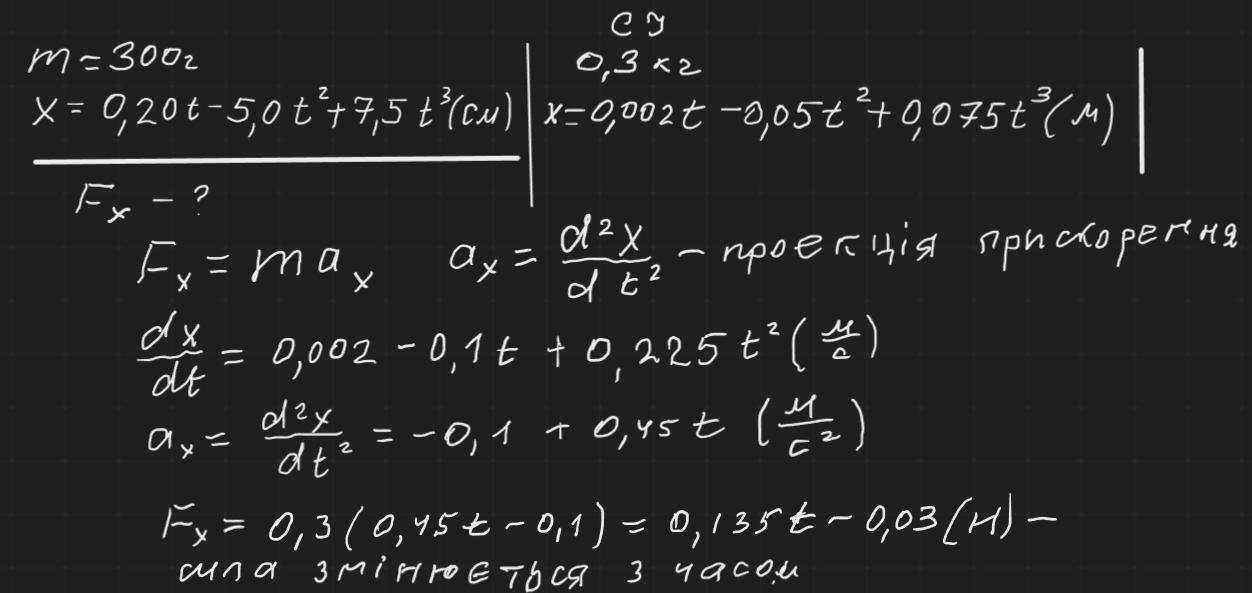 СІ
m = 300г
0,3 кг
x = 0,20t - 5,0t² + 7,5t³(см) x = 0,002t - 0,05t² + 0,075t³(м)
Fₓ - ?
Fₓ = m aₓ aₓ = d²x/dt² - проекція прискорення
dx/dt = 0,002 - 0,1t + 0,225t² (м/с)
aₓ = d²x/dt² = -0,1 + 0,45t (м/с²)
Fₓ = 0,3(0,45t - 0,1) = 0,135t - 0,03(Н) -
сила змінюється з часом